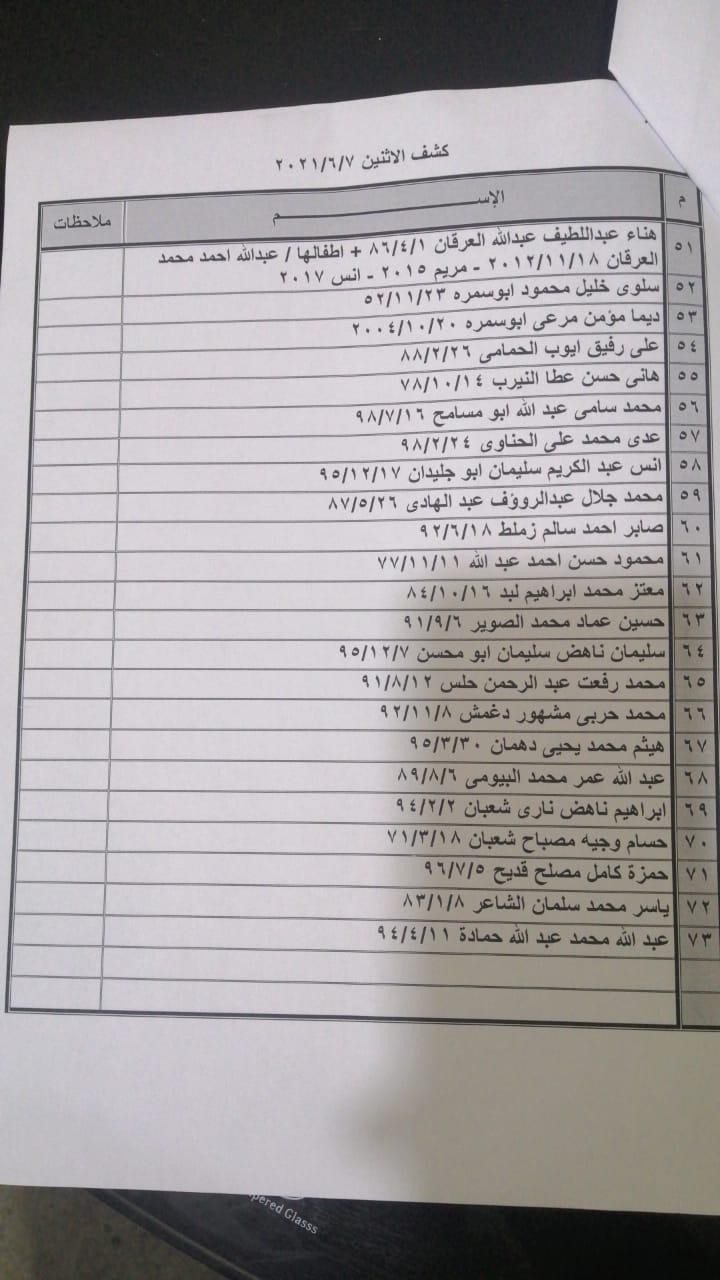 كشف الاثنين ٢٠٢١/٦/٧
م الإســـــــــم ملاحظات
٥١ هناء عبداللطيف عبدالله العرقان ٨٦/٤/١ + اطفالها / عبدالله احمد محمد
العرقان ٢٠١٢/١١/١٨ - مريم ٢٠١٥ - انس ٢٠١٧
٥٢ سلوى خليل محمود ابوسمره ٥٢/١١/٢٣
٥٣ ديما مؤمن مرعى ابوسمره ٢٠٠٤/١٠/٢٠
٥٤ على رفيق ايوب الحمامى ٨٨/٢/٢٦
٥٥ هانى حسن عطا النيرب ٧٨/١٠/١٤
٥٦ محمد سامى عبد الله ابو مسامح ٩٨/٧/١٦
٥٧ عدى محمد على الحناوى ٩٨/٢/٢٤
٥٨ انس عبد الكريم سليمان ابو جليدان ٩٥/١٢/١٧
٥٩ محمد جلال عبدالروؤف عبد الهادى ٨٧/٥/٢٦
٦٠ صابر احمد سالم زملط ٩٢/٦/١٨
٦١ محمود حسن احمد عبد الله ٧٧/١١/١١
٦٢ معتز محمد ابراهيم لبد ٨٤/١٠/١٦
٦٣ حسين عماد محمد الصوير ٩١/٩/٦
٦٤ سليمان ناهض سليمان ابو محسن ٩٥/١٢/٧
٦٥ محمد رفعت عبد الرحمن حلس ٩١/٨/١٢
٦٦ محمد حربى مشهور دغمش ٩٢/١١/٨
٦٧ هيثم محمد يحيى دهمان ٩٥/٣/٣٠
٦٨ عبد الله عمر محمد البيومى ٨٩/٨/٦
٦٩ ابراهيم ناهض نارى شعبان ٩٤/٢/٢
٧٠ حسام وجيه مصباح شعبان ٧١/٣/١٨
٧١ حمزة كامل مصلح قديح ٩٦/٧/٥
٧٢ ياسر محمد سلمان الشاعر ٨٣/١/٨
٧٣ عبد الله محمد عبد الله حمادة ٩٤/٤/١١
pered Glasss